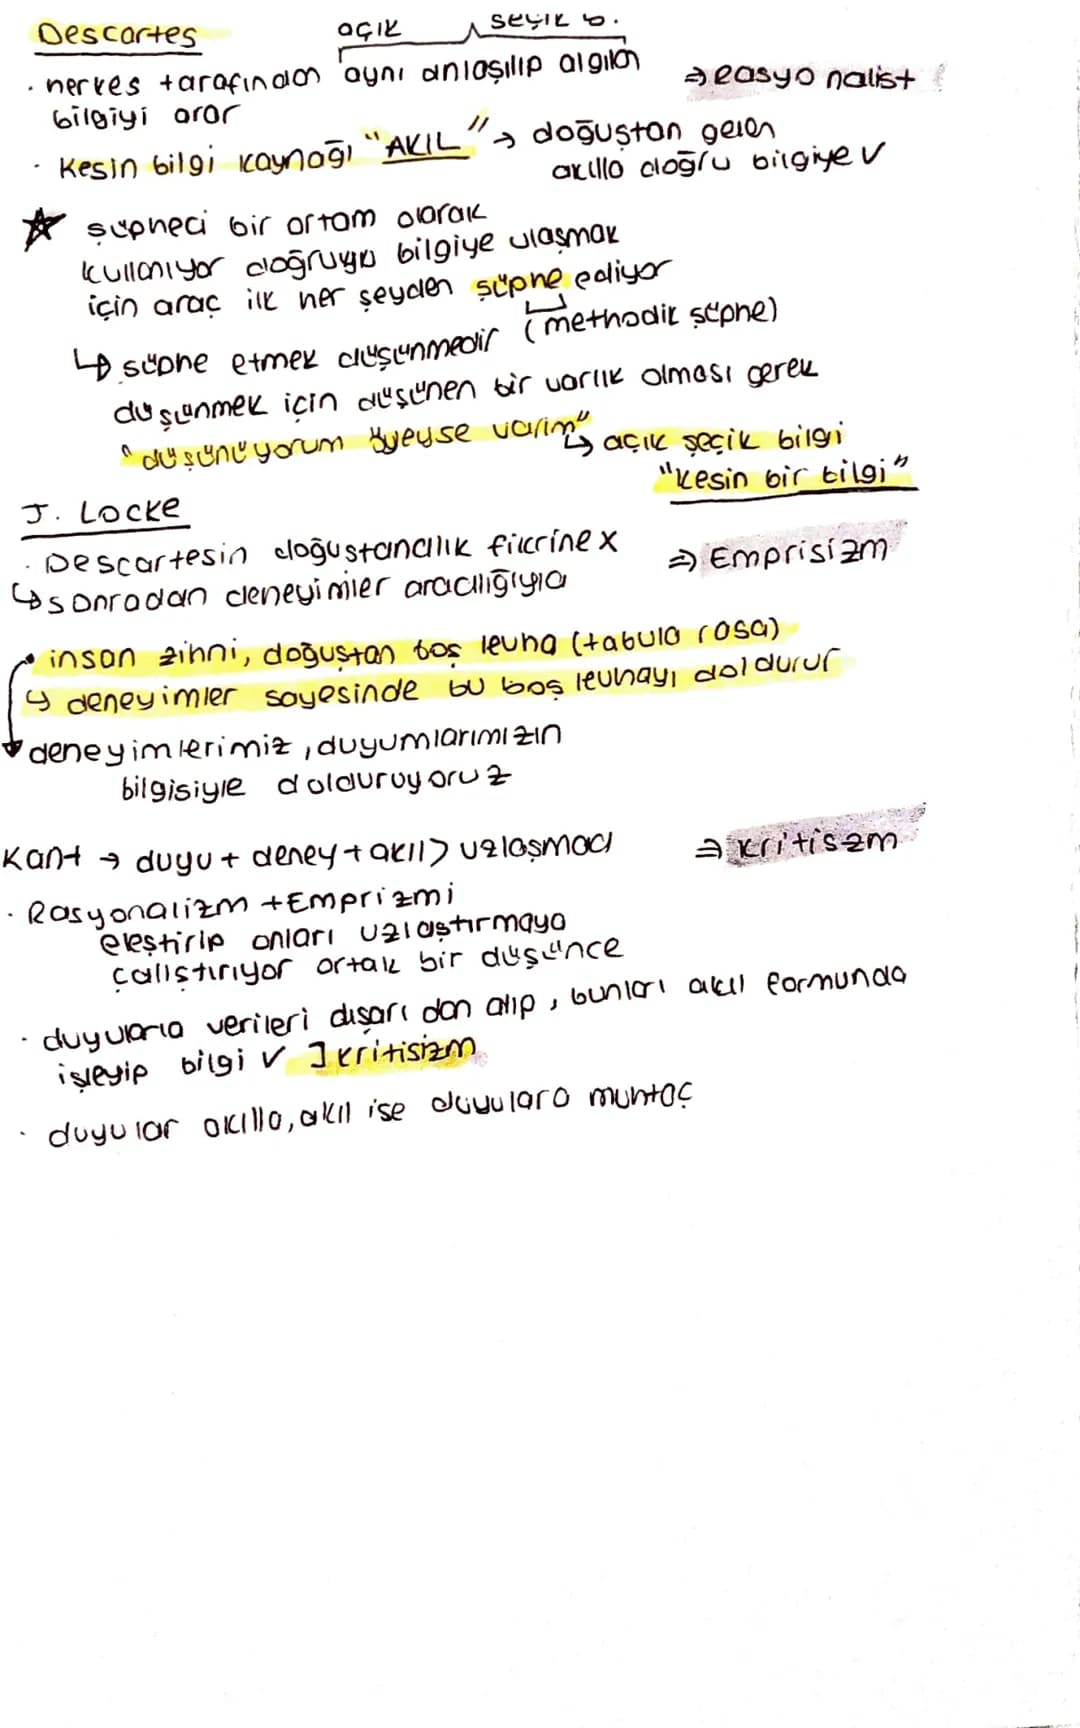 Descartes açık seçik b.
· herkes tarafından aynı anlaşılıp algılan ⇒ Rasyonalist
bilgiyi arar
· Kesin bilgi kaynağı "AKIL" → doğuştan gelen
akılla doğru bilgiye ✓
☆ şüpheci bir ortam olarak
kullanıyor doğruyu bilgiye ulaşmak
için araç ilk her şeyden şüphe ediyor
↳ şüphe etmek düşünmedir (methodik şüphe)
düşünmek için düşünen bir varlık olması gerek
"düşünüyorum öyeyse varım" ↳ açık şeçik bilgi
"kesin bir bilgi"
J. Locke
· Descartesin doğuştancılık fikrine x ⇒ Emprisizm
↳ sonradan deneyimler aracılığıyla
• insan zihni, doğuştan boş levha (tabula rosa)
↳ deneyimler sayesinde bu boş levhayı doldurur
deneyimlerimiz, duyumlarımızın
bilgisiyle dolduruyoruz
Kant → duyu + deney + akıl > uzlaşmacı ⇒ kritiszm
· Rasyonalizm + Emprizmi
eleştirip onları uzlaştırmaya
çalıştırıyor ortak bir düşünce
· duyularla verileri dışarıdan alıp, bunları akıl formunda
işleyip bilgi ✓ ] kritisizm
· duyular akılla, akıl ise duyulara muhtaç